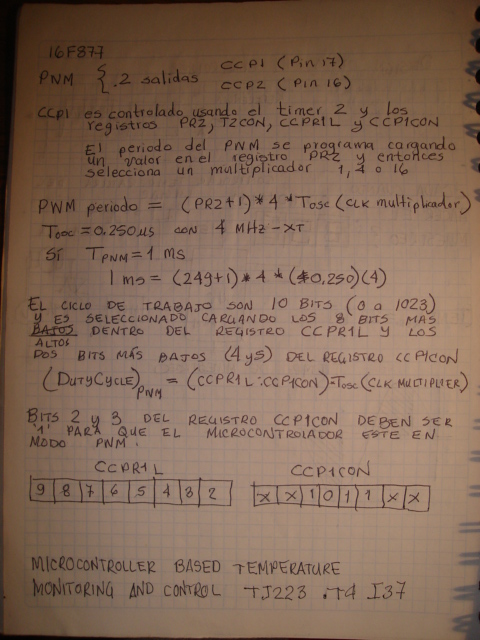 16F877
PNM { .2 salidas CCP1 (Pin 17)
CCP2 (Pin 16)
CCP1 es controlado usando el timer 2 y los
registros PR2, T2CON, CCPR1L y CCP1CON
El periodo del PNM se programa cargando
un valor en el registro PR2 y entonces
selecciona un multiplicador 1, 4 o 16
PWM periodo = (PR2+1)*4*Tosc(CLK multiplicador)
Tosc=0.250µs con 4 MHz-XT
Si TPNM=1 ms
1 ms = (249+1)*4*(0,250)(4)
EL CICLO DE TRABAJO SON 10 BITS (0 a 1023)
Y ES SELECCIONADO CARGANDO LOS 8 BITS MAS
BAJOS DENTRO DEL REGISTRO CCPR1L Y LOS
ALTOS
DOS BITS MÁS BAJOS (4 y 5) DEL REGISTRO CCP1CON
(DUTYCYCLE)PNM = (CCPR1L:CCP1CON)*Tosc(CLK MULTIPLIER)
BITS 2 y 3 DEL REGISTRO CCP1CON DEBEN SER
'1' PARA QUE EL MICROCONTROLADOR ESTE EN
MODO PNM.
CCPR1L CCP1CON
9 8 7 6 5 4 3 2 X X 1 0 1 1 X X
MICROCONTROLLER BASED TEMPERATURE
MONITORING AND CONTROL TJ223 .T4 I37